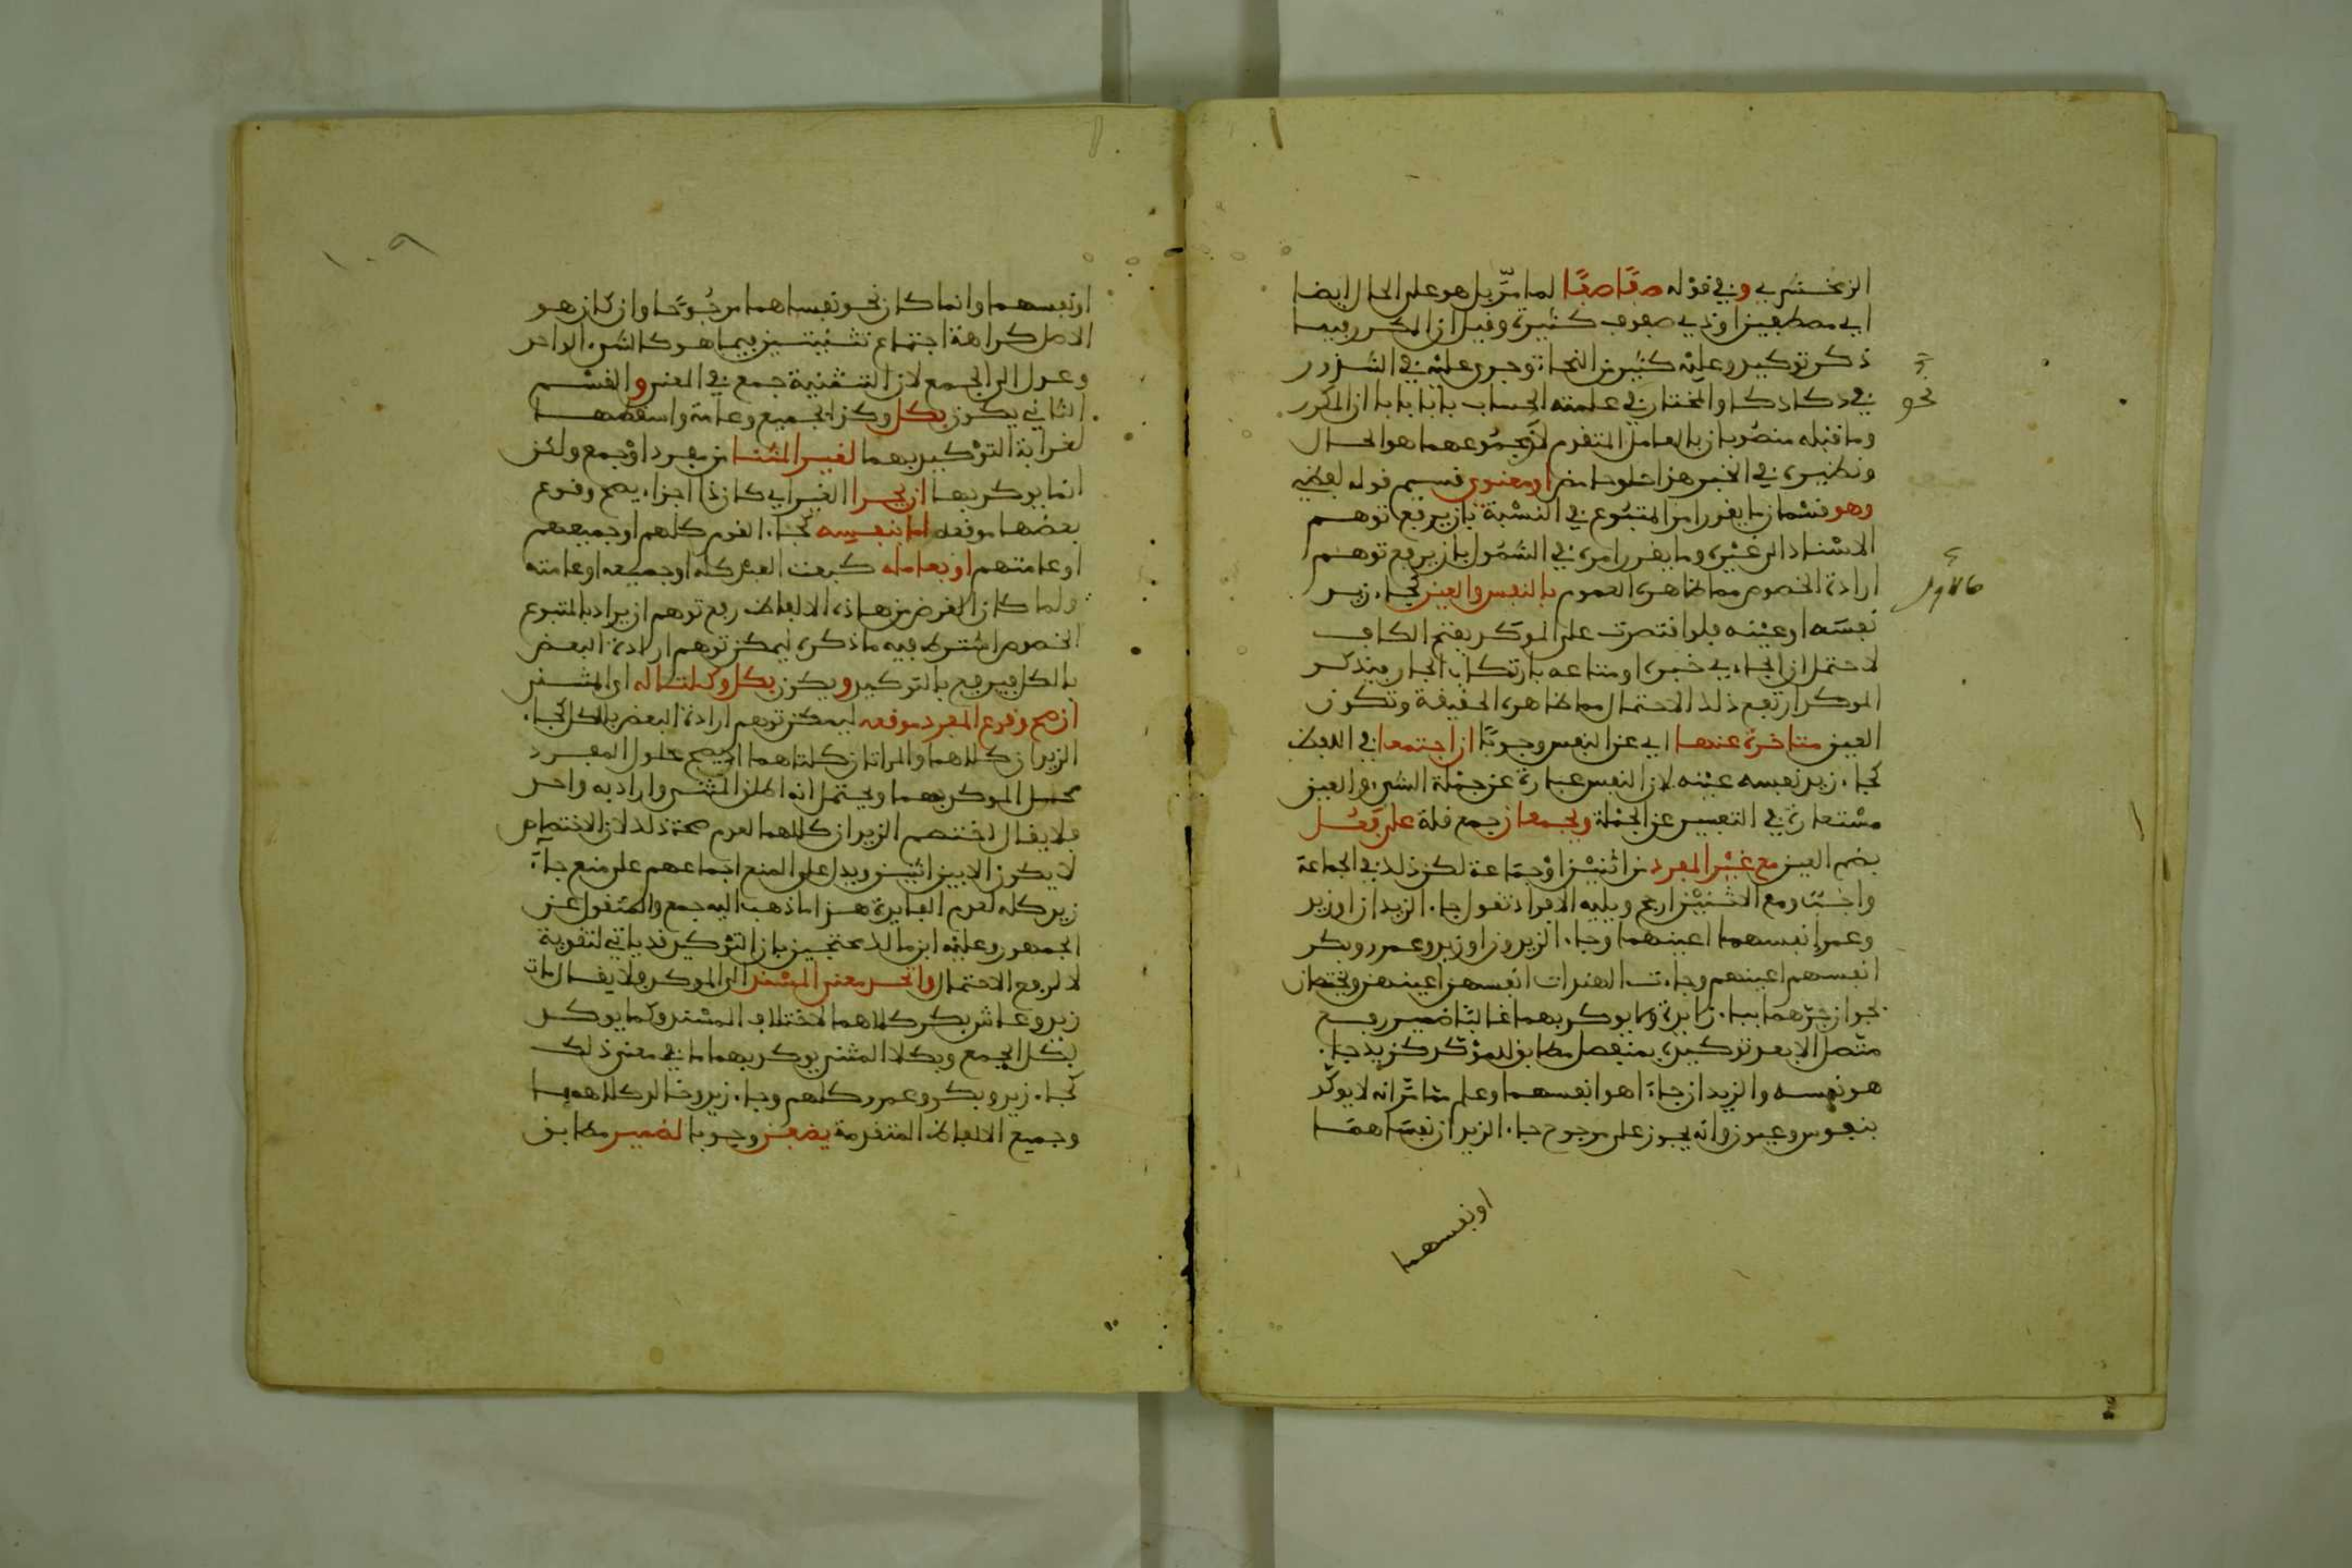 الزمخشري وفي قوله صفا صفا لما مر بل هو على الحال ايضا
اي مصطفين او ذوي صفوف كثيرة وقيل ان المكرر فيما
ذكر توكيد وعليه كثير من النحاة وجرى عليه في الشذور
نحو
في دكا دكا والمختار في علمته الحساب بابا بابا ان المكرر
وما قبله منصوبان بالعامل المتقدم لان مجموعهما هو الحال
ونظيره في الخبر هذا حلو حامض او معنوي قسيم قوله لفظي
وهو قسمان ما يقرر امر المتبوع في النسبة بان يرفع توهم
الاسناد الى غيره وما يقرر امره في الشمول بان يرفع توهم
كالاول
ارادة الخصوص مما ظاهره العموم بالنفس والعين كجاء زيد
نفسه او عينه فلو اقتصرت على الموكد بفتح الكاف
لاحتمل ان الجاءي خبره او متاعه بارتكاب المجاز فبذكر
الموكد ارتفع ذلك الاحتمال مما ظاهره الحقيقة وتكون
العين متاخرة عنها اي عن النفس وجوبا ان اجتمعا في اللفظ
كجاء زيد نفسه عينه لان النفس عبارة عن جملة الشيء والعين
مستعارة في التعبير عن الجملة ويجمعان جمع قلة على افعل
بضم العين مع غير المفرد من اثنين او جماعة لكن ذلك في الجماعة
واجب ومع الاثنين ارجح ويليه الافراد تقول جاء الزيدان او زيد
وعمرو انفسهما اعينهما وجاء الزيدون او زيد وعمرو وبكر
انفسهم اعينهم وجاءت الهندات انفسهن اعينهن ويختصان
بجواز جرهما بباء زايدة ولا يوكد بهما غالبا ضمير رفع
متصل الا بعد توكيده بمنفصل مطابق للموكد كزيد جاء
هو نفسه والزيدان جاءا هما انفسهما وعلم مما مر انه لا يوكد
بنفوس وعيون وانه يجوز على مرجوح جاء الزيدان نفساهما
او نفسهما
١٠٩
او نفسهما وانما كان نحو نفساهما مرجوحا وان كان هو
الاصل كراهة اجتماع تثنيتين فيما هو كالشيء الواحد
وعدل الى الجمع لان التثنية جمع في المعنى والقسم
الثاني يكون بكل وكذا جميع وعامة واسقطهما
لغرابة التوكيد بهما لغير المثنى من مفرد او جمع ولكن
انما يوكد بها ان تجزا الغير اي كان ذا اجزاء يصح وقوع
بعضها موقعه اما بنفسه كجاء القوم كلهم او جميعهم
او عامتهم او بعامله كبعت العبد كله او جميعه او عامته
ولما كان الغرض من هذه الالفاظ رفع توهم ان يراد بالمتبوع
الخصوص اشترط فيه ما ذكر ليمكن توهم ارادة البعض
بالكل فيرفع بالتوكيد ويكون بكلا وكلتا له اي المثنى
ان صح وقوع المفرد موقعه ليمكن توهم ارادة البعض بالكل كجاء
الزيدان كلاهما والمراتان كلتاهما اذ يصح حلول المفرد
محل الموكد بهما ويحتمل انه اطلق المثنى واراد به واحد
فلا يقال اختصم الزيدان كلاهما لعدم صحة ذلك لان الاختصام
لا يكون الا بين اثنين ويدل على المنع اجماعهم على منع جاء
زيد كله لعدم الفايدة هذا ما ذهب اليه جمع والمنقول عن
الجمهور وعليه ابن مالك محتجين بان التوكيد قد ياتي لتقوية
لا لرفع الاحتمال واتحد معنى المسند الى الموكد فلا يقال مات
زيد وعاش بكر كلاهما لاختلاف المسند وكما يوكد
بكل الجمع وبكلا المثنى يوكد بهما ما في معنى ذلك
كجاء زيد وبكر وعمرو كلهم وجاء زيد وخالد كلاهما
وجميع الالفاظ المتقدمة يضفن وجوبا لضمير مطابق